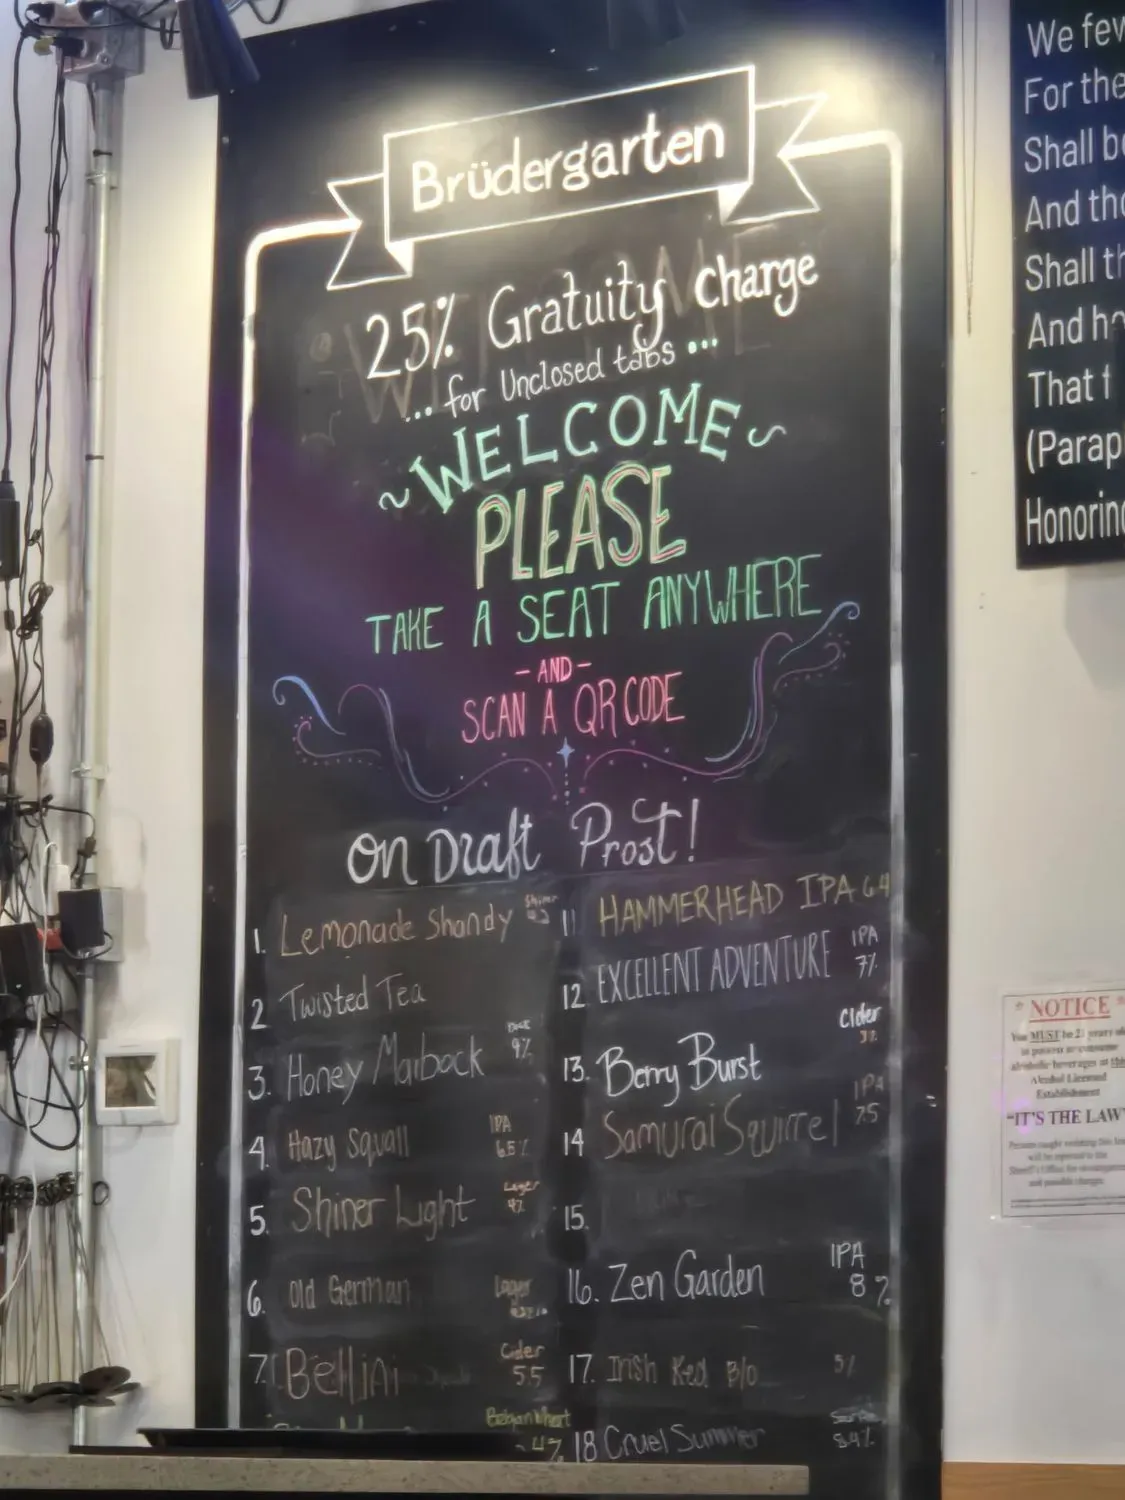 Brüdergarten
25% Gratuity charge
... for Unclosed tabs ...
~ WELCOME ~
PLEASE
TAKE A SEAT ANYWHERE
- AND -
SCAN A QR CODE
On Draft Prost!
1. Lemonade Shandy Shiner
2 Twisted Tea
3. Honey Maibock Bock 9%
4. Hazy Squall IPA 6.5%
5. Shiner Light Lager 4%
6. Old German Lager
7. Bellini Cider 5.5
Belgian Wheat
4%
11 HAMMERHEAD IPA 6.4
12 EXCELLENT ADVENTURE IPA 7%
13. Berry Burst Cider
14 Samurai Squirrel IPA 7.5
15.
16. Zen Garden IPA 8%
17. Irish Red B/O 5%
18 Cruel Summer
We few
For the
Shall be
And tho
Shall th
And ho
That f
(Parap
Honoring
* NOTICE *
You MUST be 21 years old
to possess or consume
alcoholic beverages at this
Alcohol Licensed
Establishment
"IT'S THE LAW"